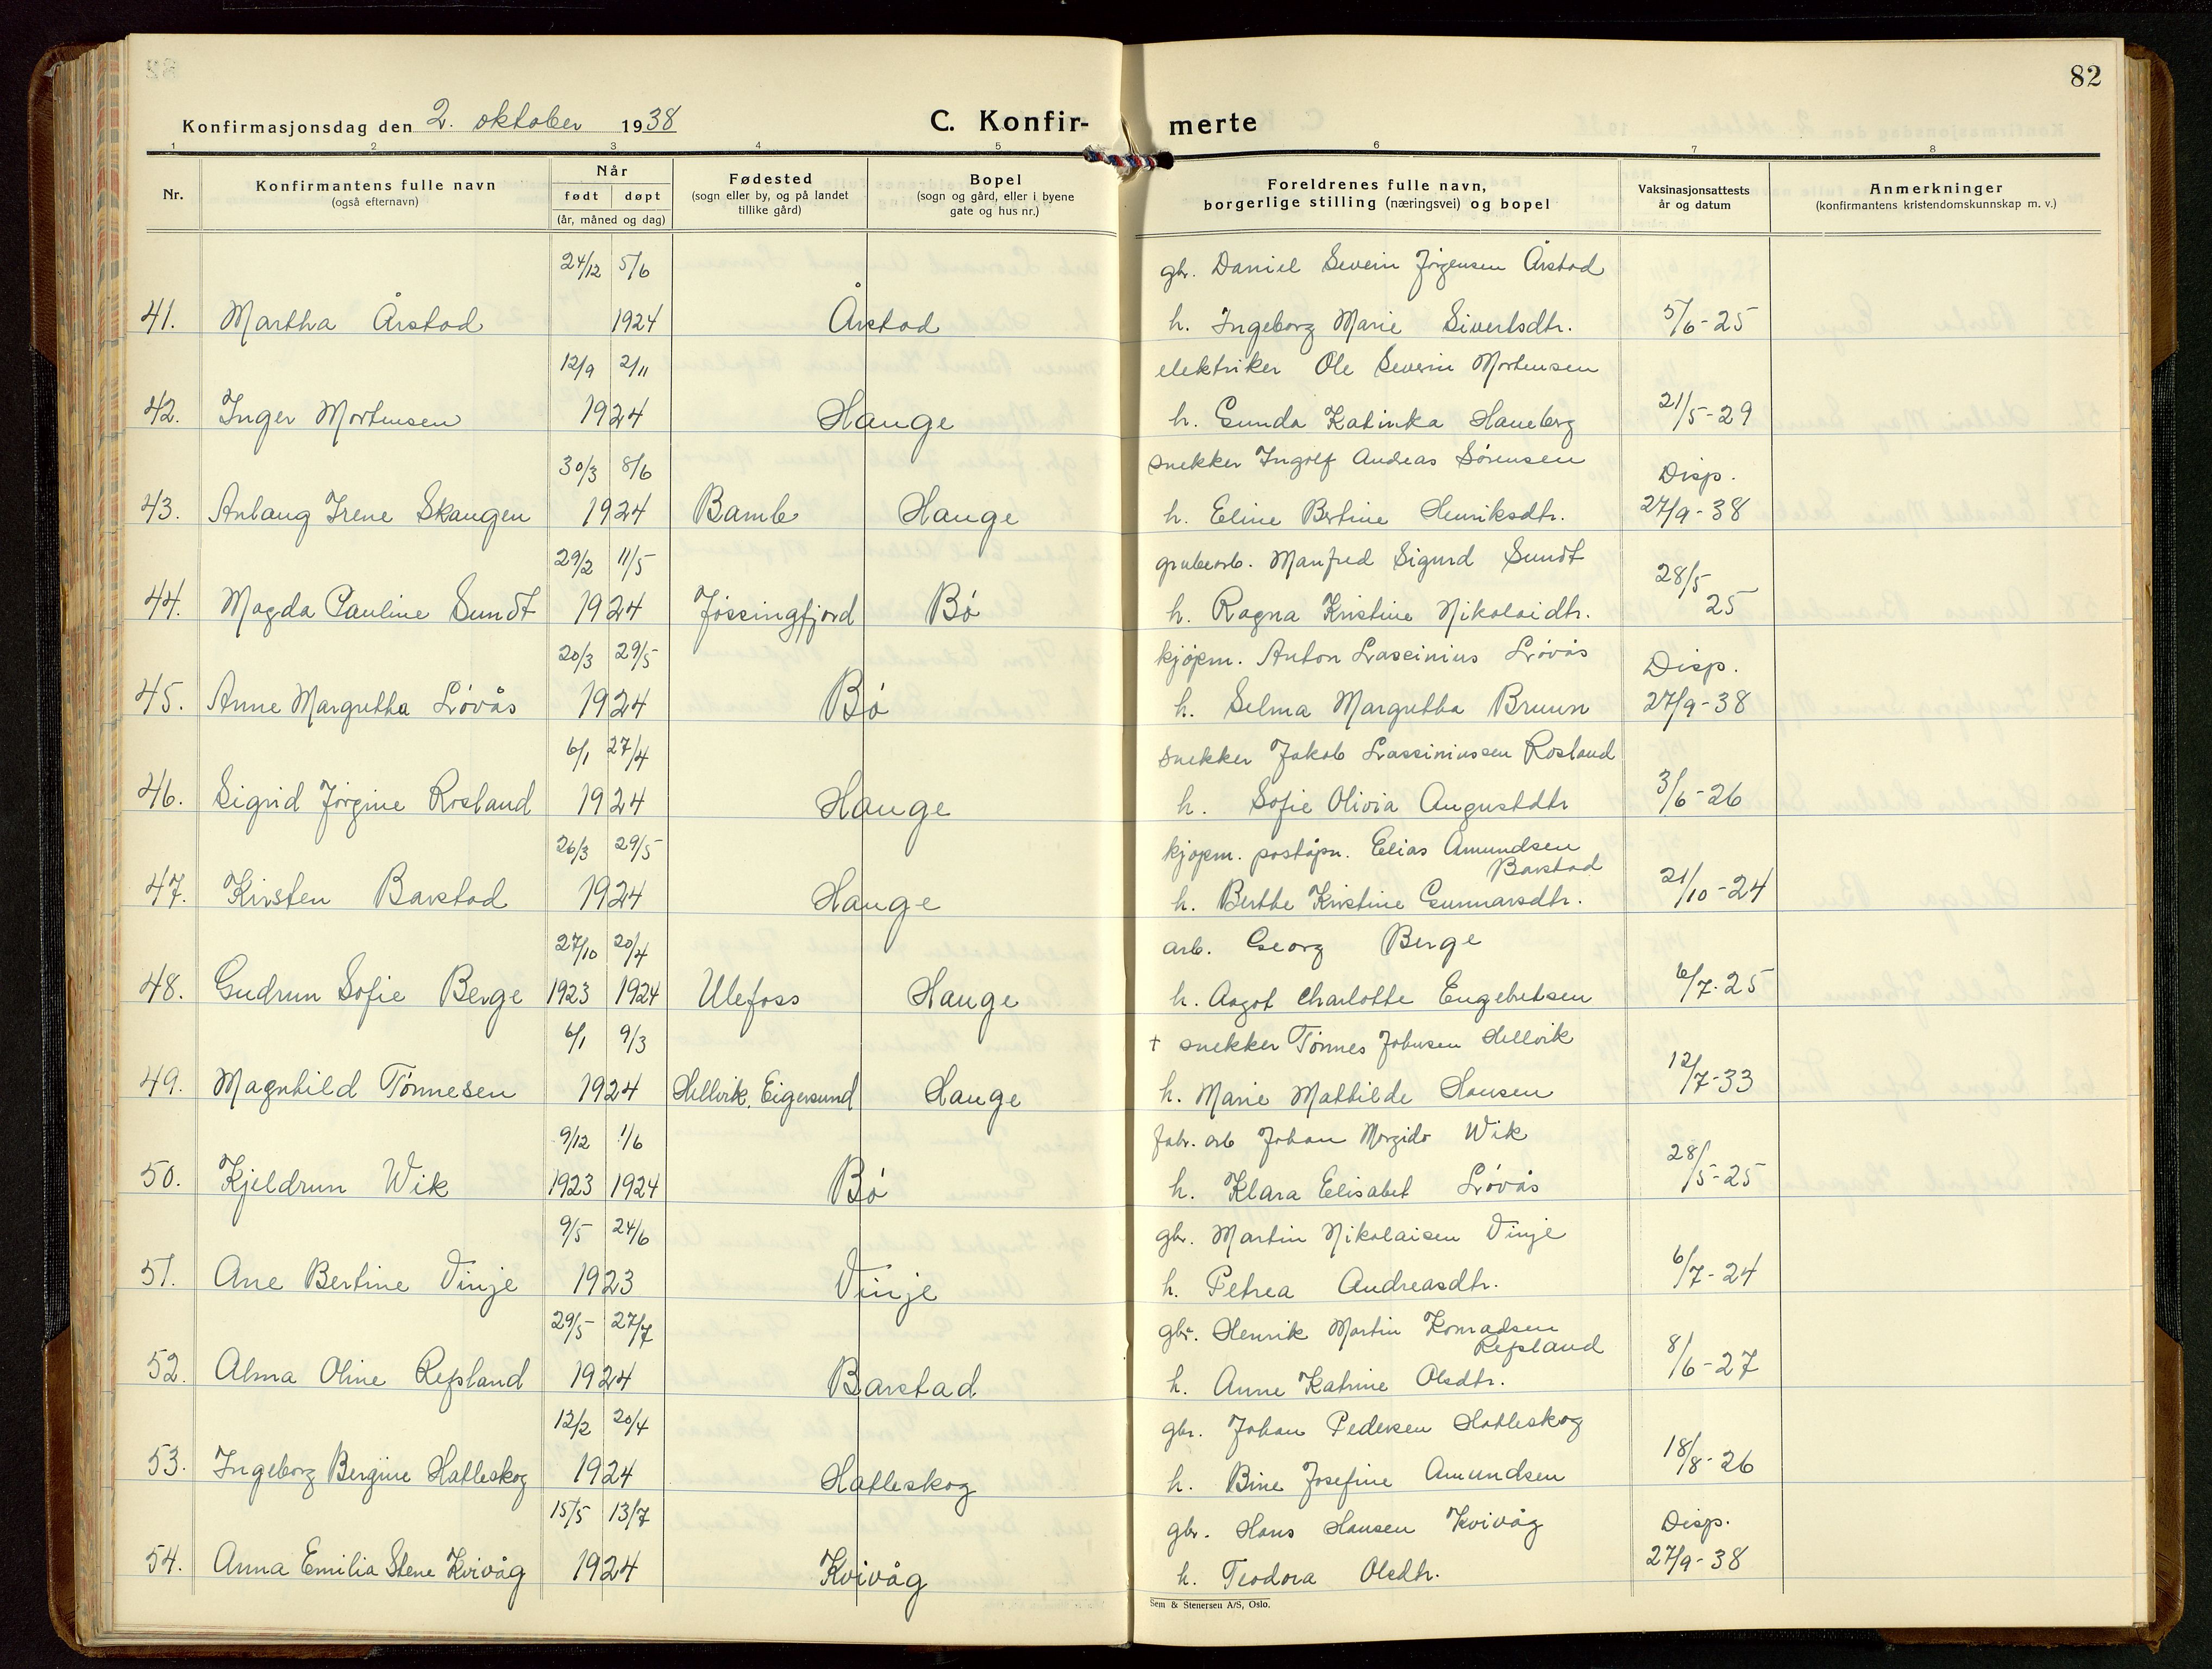 82
Konfirmasjonsdag den 2. oktober 1938
C. Konfir- merte
1 2 3 4 5 6 7 8
Nr.
Konfirmantens fulle navn
(også efternavn)
Når
født døpt
(år, måned og dag)
Fødested
(sogn eller by, og på landet
tillike gård)
Bopel
(sogn og gård, eller i byene
gate og hus nr.)
Foreldrenes fulle navn,
borgerlige stilling (næringsvei) og bopel
Vaksinasjonsattests
år og datum
Anmerkninger
(konfirmantens kristendomskunnskap m. v.)
24/12 5/6 gbr. Daniel Severin Jørgensen Årstad
41. Martha Årstad 1924 Årstad h. Ingeborg Marie Sivertsdtr. 5/6-25
12/9 2/11 elektriker Ole Severin Mortensen
42. Inger Mortensen 1924 Hauge h. Gunda Katinka Haneberg 21/5-29
30/3 8/6 snekker Ingolf Andreas Sørensen Disp.
43. Anlaug Irene Skaugen 1924 Bamle Hauge h. Eline Bertine Henriksdtr. 27/9-38
29/2 11/5 grubearb. Manfred Sigurd Sundt 28/5
44. Magda Pauline Sundt 1924 Jøssingfjord Bø h. Ragna Kristine Nikolaidtr. 25
20/3 29/5 kjøpm. Anton Lassinius Løvås Disp.
45. Anne Margretha Løvås 1924 Bø h. Selma Margretha Bruun 27/9-38
6/1 27/4 snekker Jakob Lassiniussen Rosland
46. Sigrid Jørgine Rosland 1924 Hauge h. Sofie Olivia Augustdtr 3/6-26
26/3 29/5 kjøpm. poståpn. Elias Amundsen
Barstad
47. Kirsten Barstad 1924 Hauge h. Berthe Kristine Gunnarsdtr. 21/10-24
27/10 20/4 arb. Georg Berge
48. Gudrun Sofie Berge 1923 1924 Ulefoss Hauge h. Aagot Charlotte Engebretsen 6/7-25
6/1 9/3 † snekker Tønnes Johnsen Hellvik
49. Magnhild Tønnesen 1924 Hellvik, Eigersund Hauge h. Marie Mathilde Hansen 12/7-33
9/12 1/6 fabr. arb Johan Wik
50. Kjeldrun Wik 1923 1924 Bø h. Klara Elisabet Løvås 28/5-25
9/5 24/6 gbr. Martin Nikolaisen Vinje
51. Ane Bertine Vinje 1923 Vinje h. Petrea Andreasdtr. 6/7-24
29/5 27/7 gbr. Henrik Martin Konradsen
Refsland
52. Alma Oline Refsland 1924 Barstad h. Anne Katrine Olsdtr. 8/6-27
12/2 20/4 gbr. Johan Pedersen Hatleskog
53. Ingeborg Bergine Hatleskog 1924 Hatleskog h. Bine Josefine Amundsen 18/8-26
15/5 13/7 gbr. Hans Hansen Kvivåg Disp.
54. Anna Emilia Stene Kvivåg 1924 Kvivåg h. Teodora Olsdtr. 27/9-38
Sem & Stenersen A/S, Oslo.